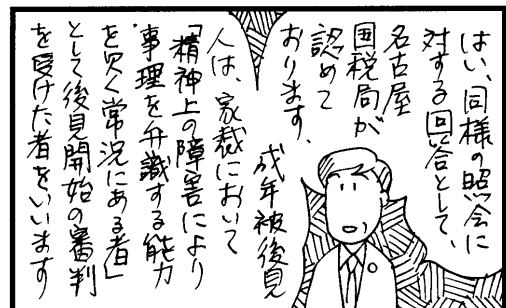 はい、同様の照会に
対する回答として、
名古屋
国税局が
認めて
おります。
成年被後見
人は、家裁において
「精神上の障害により
事理を弁識する能力
を欠く常況にある者」
として後見開始の審判
を受けた者をいいます